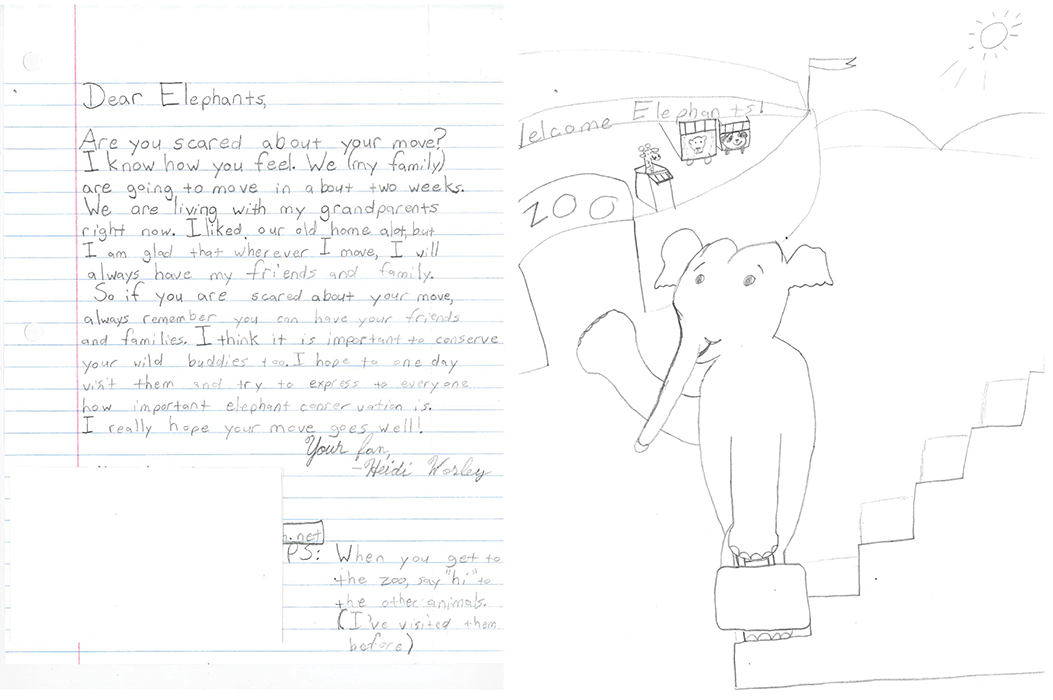 Dear Elephants,
Are you scared about your move?
I know how you feel. We (my family)
are going to move in about two weeks.
We are living with my grandparents
right now. I liked our old home alot, but
I am glad that wherever I move, I will
always have my friends and family.
So if you are scared about your move,
always remember you can have your friends
and families. I think it is important to conserve
your wild buddies too. I hope to one day
visit them and try to express to everyone
how important elephant conservation is.
I really hope your move goes well!
Your fan,
-Heidi Worley
h.net
PS: When you get to
the zoo, say "hi" to
the other animals.
(I've visited them
before)
Welcome Elephants!
ZOO